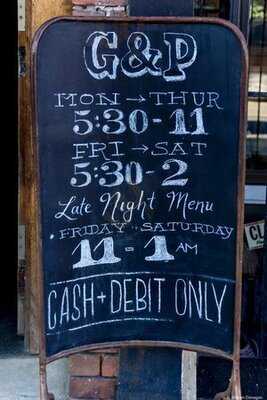 G&P
MON → THUR
5:30 - 11
FRI → SAT
5:30 - 2
Late Night Menu
FRIDAY SATURDAY
11 - 1 AM
CASH + DEBIT ONLY